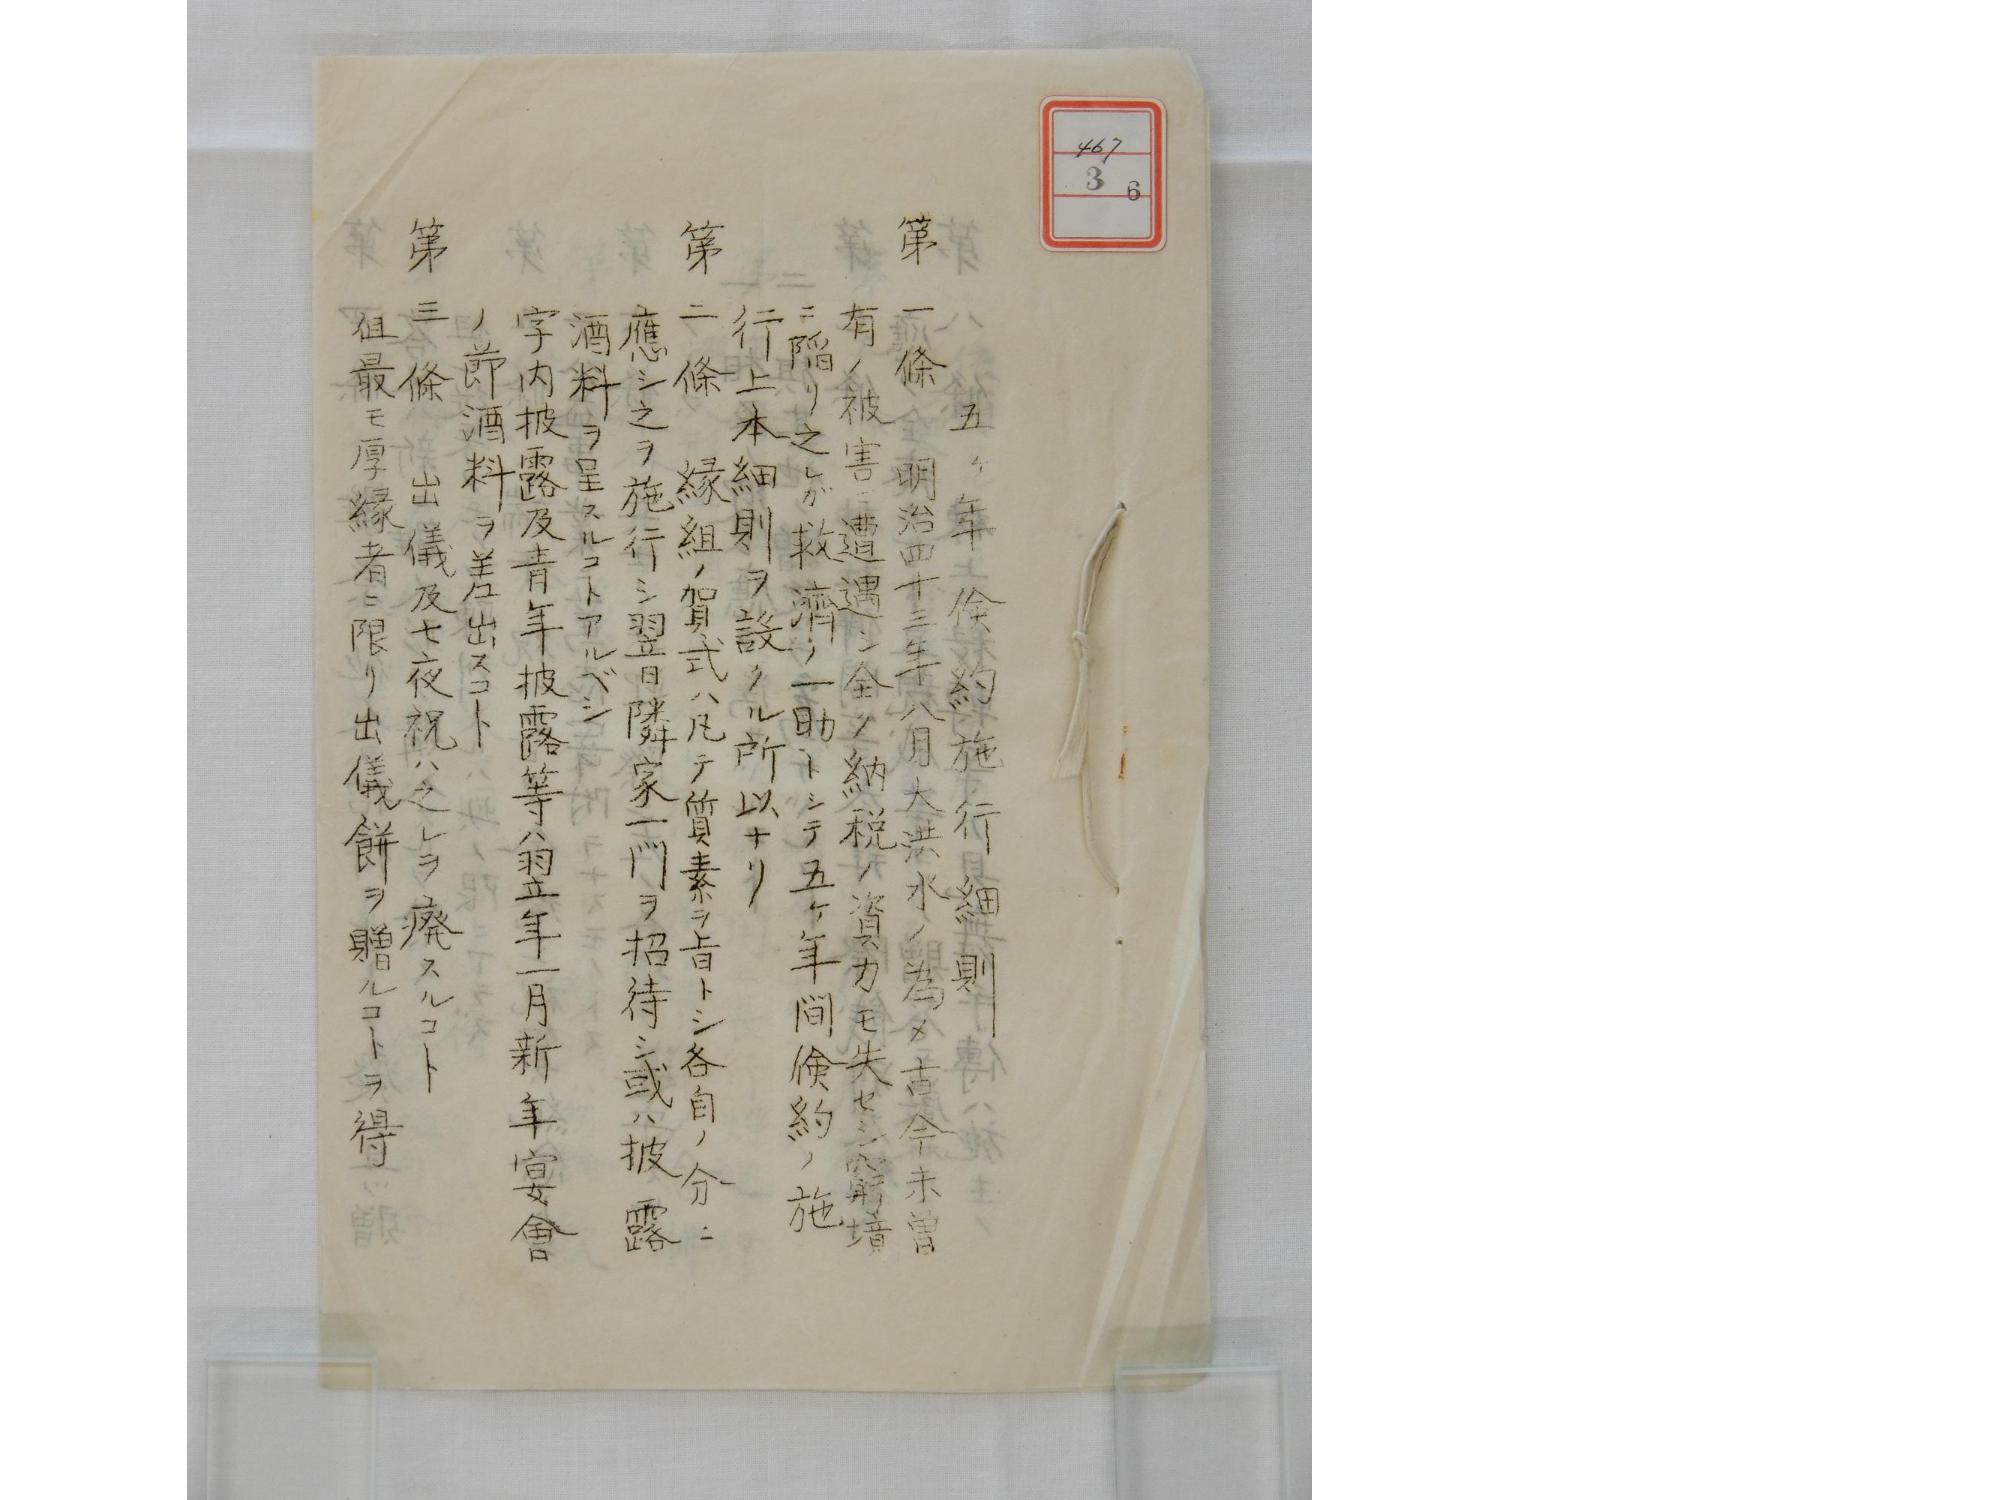 467
3 6
五ヶ年倹約施行細則
第一條 明治四十三年八月大洪水ノ為メ古今未曽
有ノ被害ニ遭遇シ全ク納税ノ資力モ失セシ窮境
ニ陥リ之レガ救濟ノ一助トシテ五ヶ年間倹約ノ施
行上本細則ヲ設クル所以ナリ
第二條 縁組ノ賀式ハ凡テ質素ヲ旨トシ各自ノ分ニ
應シ之ヲ施行シ翌日隣家一門ヲ招待シ或ハ披露
酒料ヲ呈スルコトアルベシ
字内披露及青年披露等ハ翌年一月新年宴會
ノ節酒料ヲ差出スコト
第三條 出儀及七夜祝ハ之レヲ廃スルコト
但最モ厚縁者ニ限リ出儀餅ヲ贈ルコトヲ得